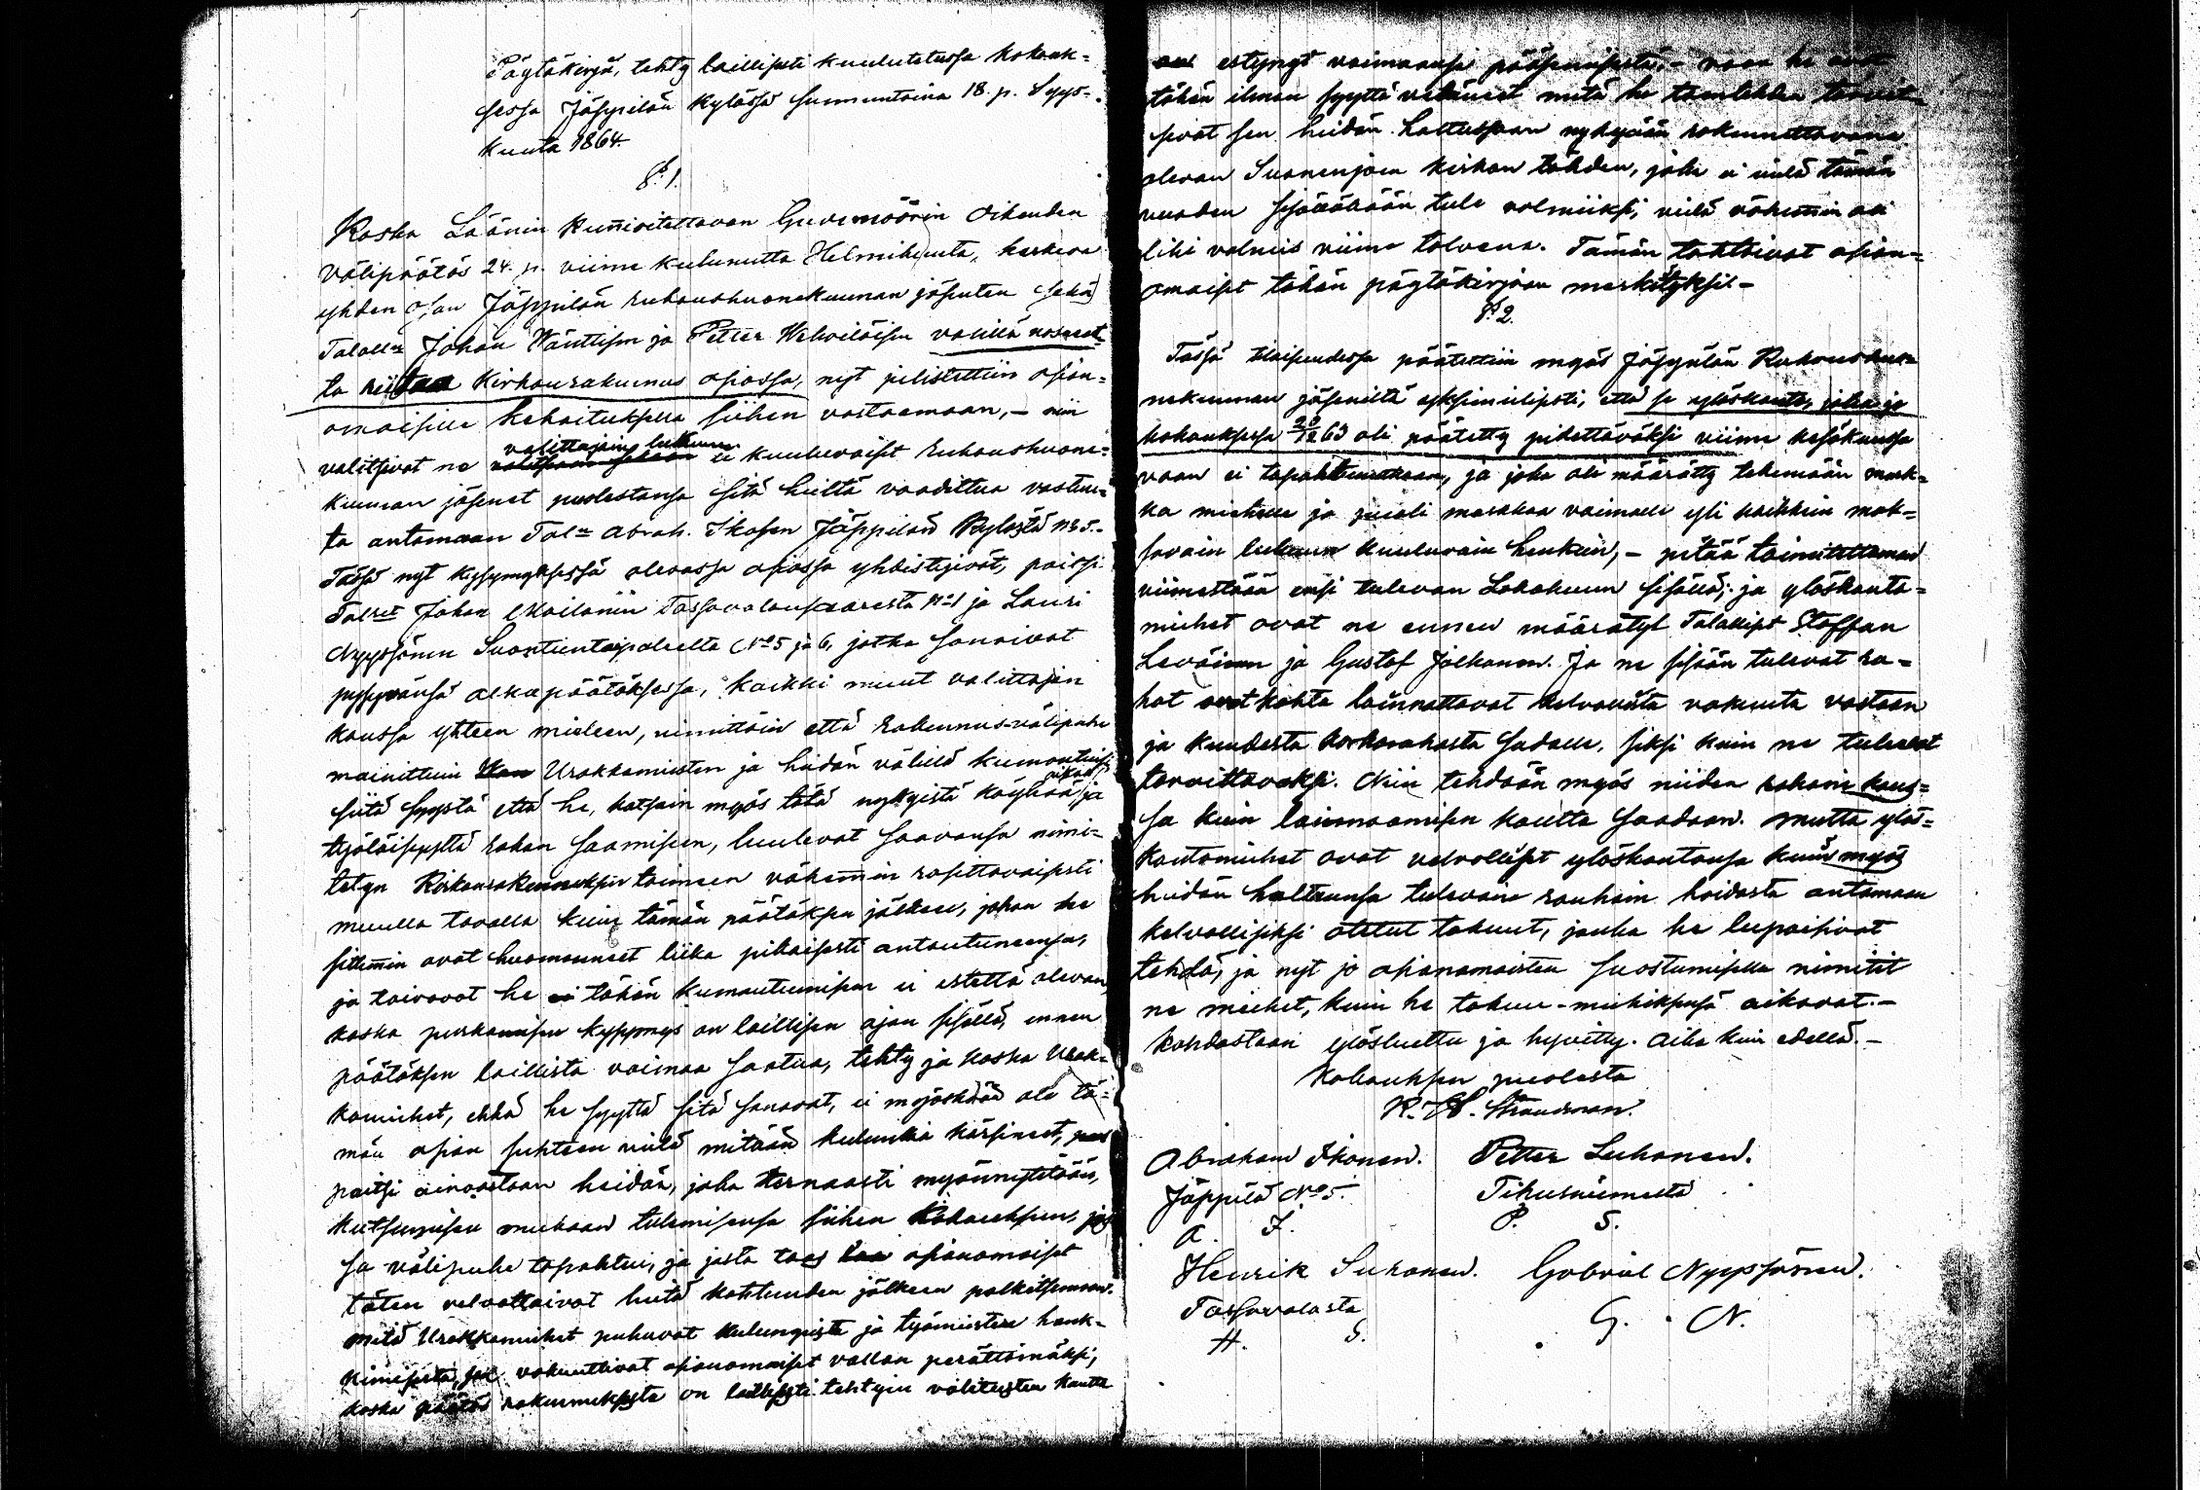 Pöytäkirja, tehty laillisesti kuulutetussa kokouk=
sessa Jäppilän kylässä sunnuntaina 18. p. Syys=
kuuta 1864.
§. 1.
Koska Läänin kunnioitettavan Guvernöörin Oikeuden
välipäätös 24. p. viime kulunutta Helmikuuta, koskeva
yhden osan Jäppilän rukoushuonekunnan jäsenten sekä
Talollr Johan Wänttisen ja Petter Wehviläisen välillä nosnut=
ta riitaa Kirkonrakennus asiassa, nyt julistettiin asian=
omaisille kehoituksella siihen vastaamaan, — niin
valitsivat ne valittajain lukuun ei kuuluvaiset rukoushuone=
kunnan jäsenet puolestansa sitä heiltä vaadittua vastaus=
ta antamaan Tal:n Abrah. Ikosen Jäppilän kylästä N:o 5. —
Tässä nyt kysymyksessä olevassa asiassa yhdistyivät, paitsi
Tal:set Johan Mailanin Tossavalansaaresta N:o 1 ja Lauri
Nyyssönen Suontientaipaleelta N:o 5 ja 6, jotka sanoivat
pysyvänsä alkupäätöksessä, kaikki muut valittajan
kanssa yhteen mieleen, nimittäin että rakennus-välipuhe
mainittuin Urakkamiesten ja heidän välillä kumottaisi
siitä syystä että he, katsoin myös tätä nykyistä köyhää aikaa ja
työläisyyttä rahan saamiseen, luulevat saavansa nimi=
tetyn Kirkonrakennuksen toimeen vähemmin rasittavaisesti
muulla tavalla kuin tämän päätöksen jälkeen, johon he
sittemmin ovat huomanneet liika pikaisesti antautuneensa,
ja toivovat he tähän kumoutumiseen ei estettä olevan,
koska purkamisen kysymys on laillisen ajan sisällä, ennen
päätöksen laillista voimaa saatua, tehty ja koska Urak=
kamiehet, ehkä he syyttä sitä sanovat, ei myöskään ole tä=
män asian suhteen vielä mitään kulunkia kärsineet,
paitsi ainoastaan heidän, joka kernaasti myönnytetään,
kutsumisen mukaan tulemisensa siihen kokoukseen, jos=
sa välipuhe tapahtui, ja josta taas asianomaiset
täten velvottaivat heitä kohtuuden jälkeen palkitsemaan.
Mitä Urakkamiehet puhuvat kulungista ja työmiesten hank=
kimisesta, sen vakuuttivat asianomaiset vallan perättömäksi,
koska päätös rakennuksesta on laillisesti tehtyin valitusten kautta
on estynyt voimaansa pääsemisestä, — vaan he ovat
tähän ilman syyttä vetäneet mitä he toimitehden tarvit=
sivat sen heidän haltussaan nykyään rakennettavana
olevan Suonenjoen kirkon tähden, joka ei vielä tämän
vuoden sisässäkään tule valmiiksi, vielä vähemmin oli
liki valmis viime talvena. Tämän tahtoivat asian=
omaiset tähän pöytäkirjaan merkityksi. —
§. 2.
Tässä tilaisuudessa päätettiin myös Jäppilän Rukoushuo=
nekunnan jäseniltä yksimielisesti, että se ylöskanto, joka jo
kokouksessa 20/12 63 oli päätetty pidettäväksi viime kesäkuussa
vaan ei tapahtunutkaan, ja joka oli määrätty tekemään mark=
ka miehelle ja puoli markkaa vaimolle yli kaikkein mak=
savain lukuun kuuluvain henkein, — pitää toimitettaman
viimeistään ensi tulevan Lokakuun sisällä; ja ylöskanto=
miehet ovat ne ennen määrätyt Talolliset Staffan
Leväinen ja Gustaf Jalkanen. Ja ne sisään tulevat ra=
hat ovat kohta lainnattavat kelvollista vakuuta vastaan
ja kuudesta korkorahasta sadalle, siksi kuin ne tulevat
tarvittavaksi. Niin tehdään myös niiden rahain kans=
sa kuin lainaamisen kautta saadaan. Mutta ylös=
kantomiehet ovat velvolliset ylöskantonsa kuin myös
heidän haltuunsa tulevain rauhain hoidosta antamaan
kelvollisiksi otetut takuut, jonka he lupaisivat
tehdä, ja nyt jo asianomaisten suostumisella nimitit
ne miehet, kuin he takuu-miehiksensä aikovat. —
Kohdastaan ylösluettu ja hyvitty. Aika kuin edellä. —
Kokouksen puolesta
K. H. Strandman.
Abraham Ikonen. Petter Suhonen.
Jäppilä N:o 5. Tihusniemestä
A. I. P. S.
Henrik Suhonen. Gabriel Nyyssönen.
Tossavalasta G. N.
H. S.